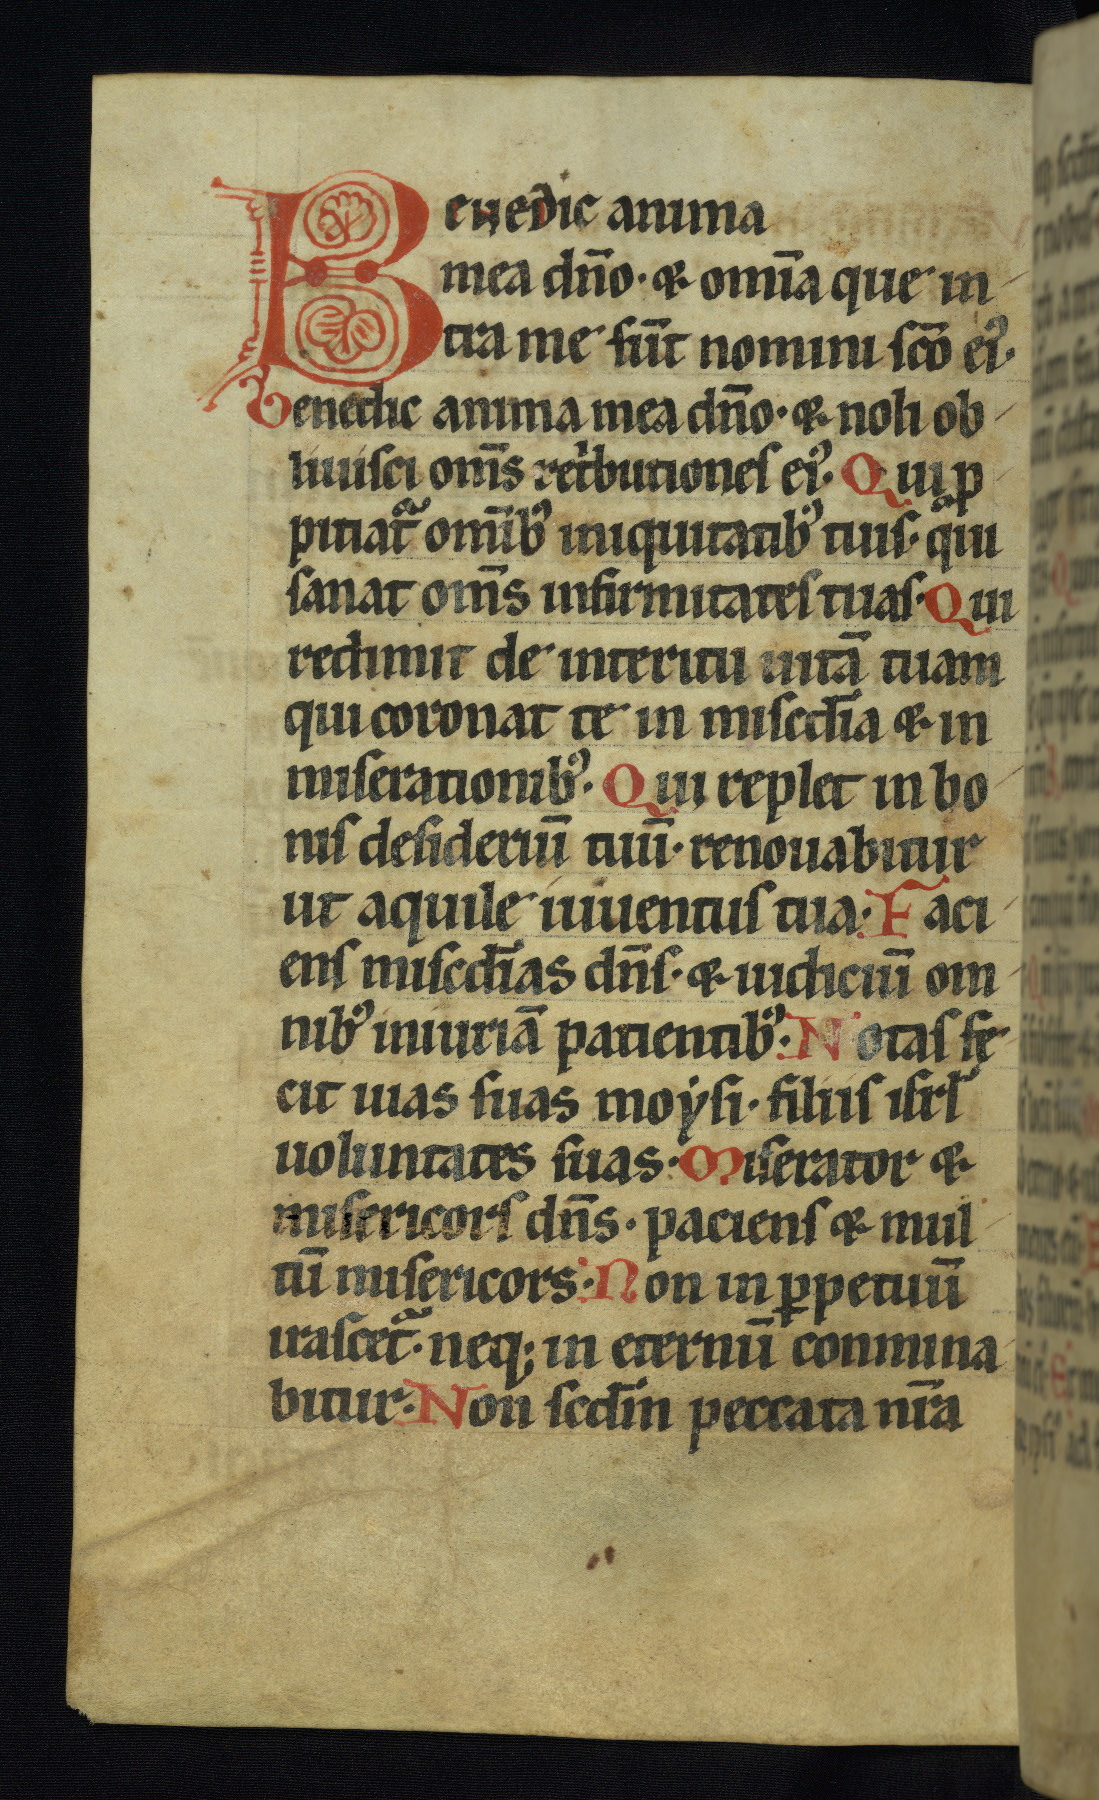 Benedic anima
mea dn̄o· ⁊ om̄ia que in
tra me sūt nomini sc̄o eiꝰ·
benedic anima mea dn̄o· ⁊ noli ob
liuisci om̄s ret'butiones eiꝰ· Qui ꝓ
pitiat᷑ om̄ibꝰ iniquitatibꝰ tuis· qͣui
sanat om̄s infirmitates tuas· Qui
redimit de interitu uitā tuam
qui coronat te in misc̄dia ⁊ in
miserationibꝰ· Qui replet in bo
nis desideriū tuū· renouabitur
ut aquile iuuentus tua· Faci
ens misc̄dias dn̄s· ⁊ iudiciū om
nibꝰ iniuriā patientibꝰ· Notas fe
cit uias suas moẏsi· filiis isrl̄
uoluntates suas· Miserator ⁊
misericors dn̄s· paciens ⁊ mul
tū misericors· Non in ꝑpetuū
irascet᷑· neq; in eternū conmina
bitur· Non scd̄m peccata nr̄a